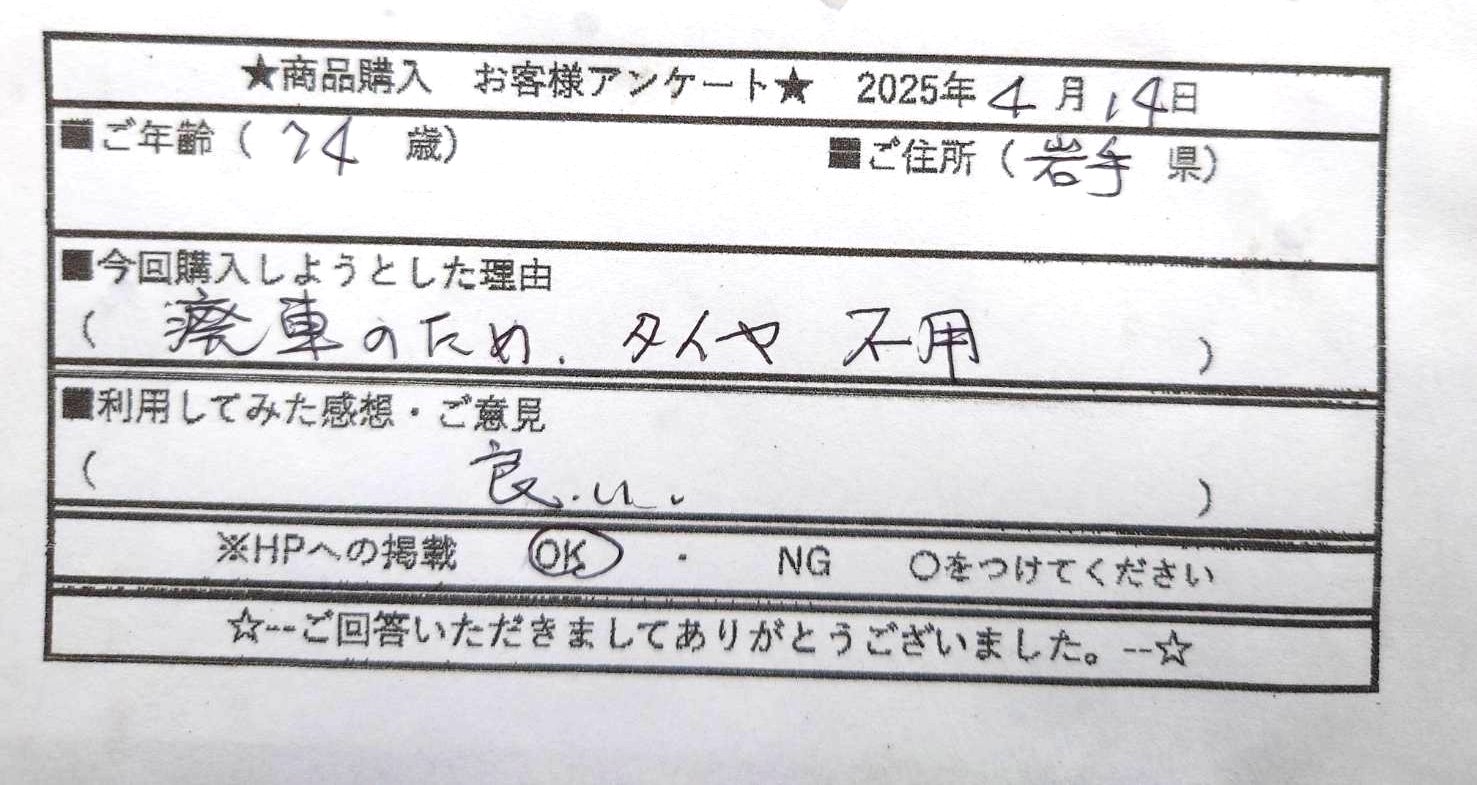 ★商品購入 お客様アンケート★ 2025年4月14日
■ご年齢（74歳） ■ご住所（岩手県）
■今回購入しようとした理由
（廃車のため. タイヤ 不用）
■利用してみた感想・ご意見
（良い）
※HPへの掲載 OK ・ NG ○をつけてください
☆--ご回答いただきましてありがとうございました。--☆